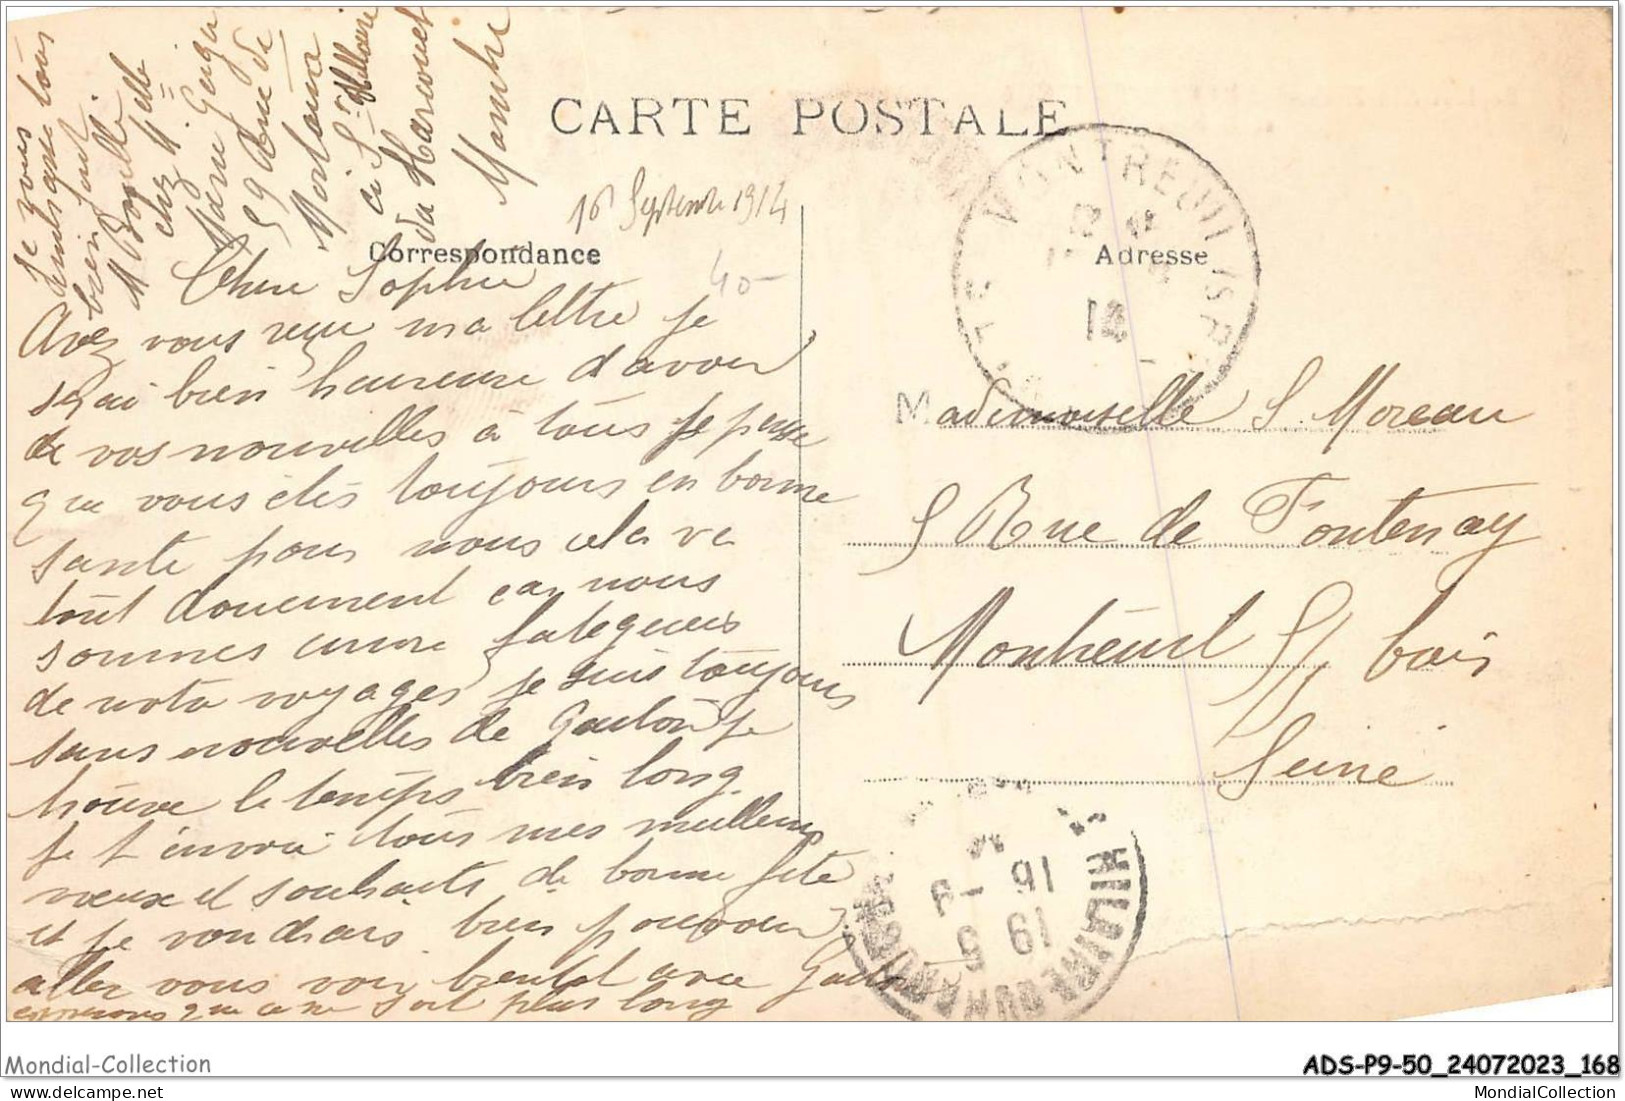 Je vous
embrasse tous
bien fort
M Bonelle
chez Melle
Marie
59 Rue de
Mortain
à St Hillaire
du Harcouet
Manche
CARTE POSTALE
16 Septembre 1914
Correspondance
Adresse
40-
Chere Sophie
Avez vous reçu ma lettre je
serai bien heureuse d'avoir
de vos nouvelles à tous je pense
que vous êtes toujours en bonne
sante pour nous cela va
tout doucement car nous
sommes encore fatigueés
de notre voyages je suis toujours
sans nouvelles de Gaston je
trouve le temps bien long.
Je t'envoie tous mes meilleurs
voeux et souhaits de bonne fête
et je voudrais bien pouvoir
aller vous voir bientot avec Gaston
esperons que ce ne soit plus long
Mademoiselle S. Moreau
5 Rue de Fontenay
Montreuil S/ bois
Seine
MONTREUIL
14
16 - 9
HILAIRE DU HARCOUET
Mondial-Collection
ADS-P9-50_24072023_168
MondialCollection